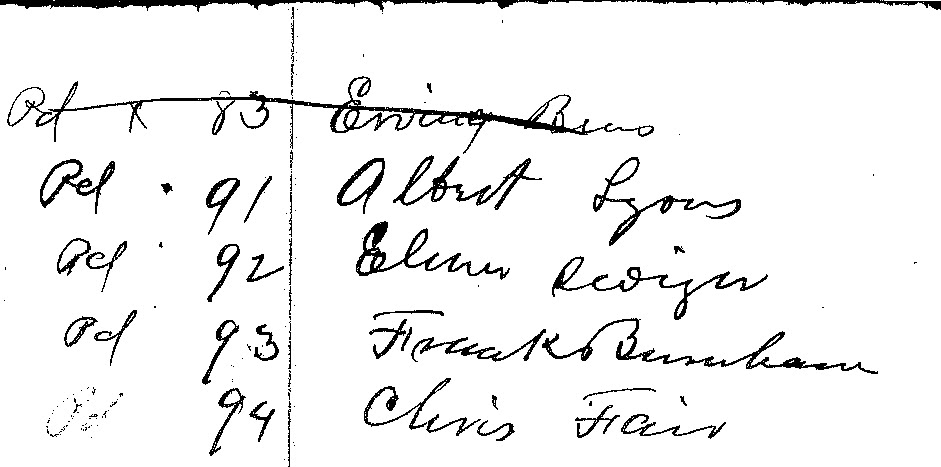 Pd x 83 Erving Buns
Pd . 91 Albert Lyons
Pd . 92 Elmer Rediger
Pd 93 Frank Burnham
Pd 94 Chris Fair